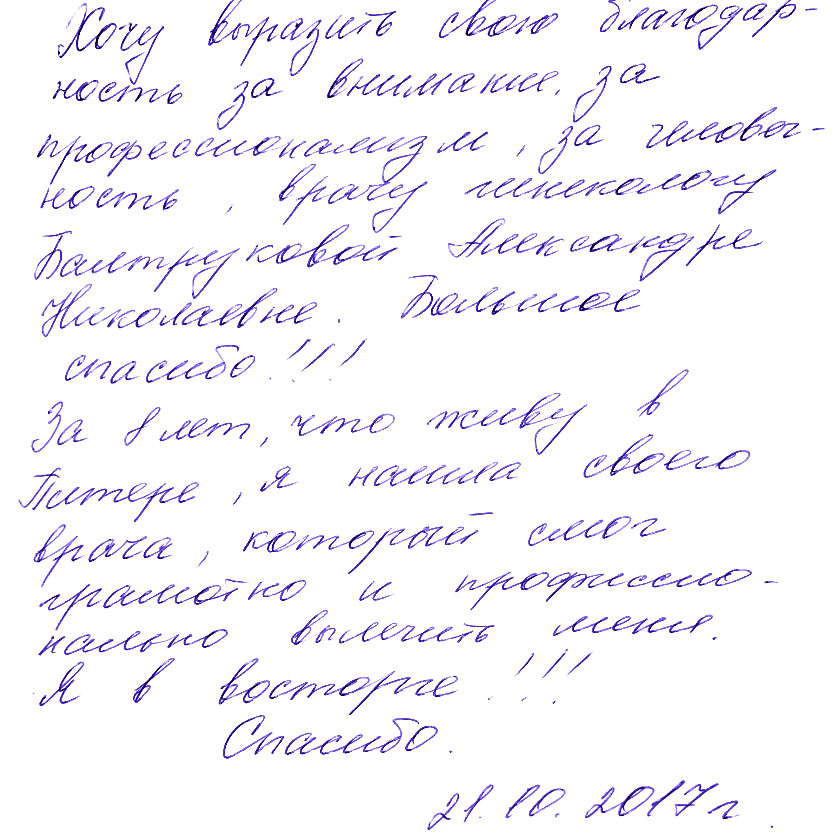 Хочу выразить свою благодар-
ность за внимание, за
профессионализм, за человеч-
ность, врачу гинекологу
Балтруковой Александре
Николаевне. Большое
спасибо!!!
За 8 лет, что живу в
Питере, я нашла своего
врача, который смог
грамотно и професcио-
нально вылечить меня.
Я в восторге!!!
Спасибо.
21.10.2017г.